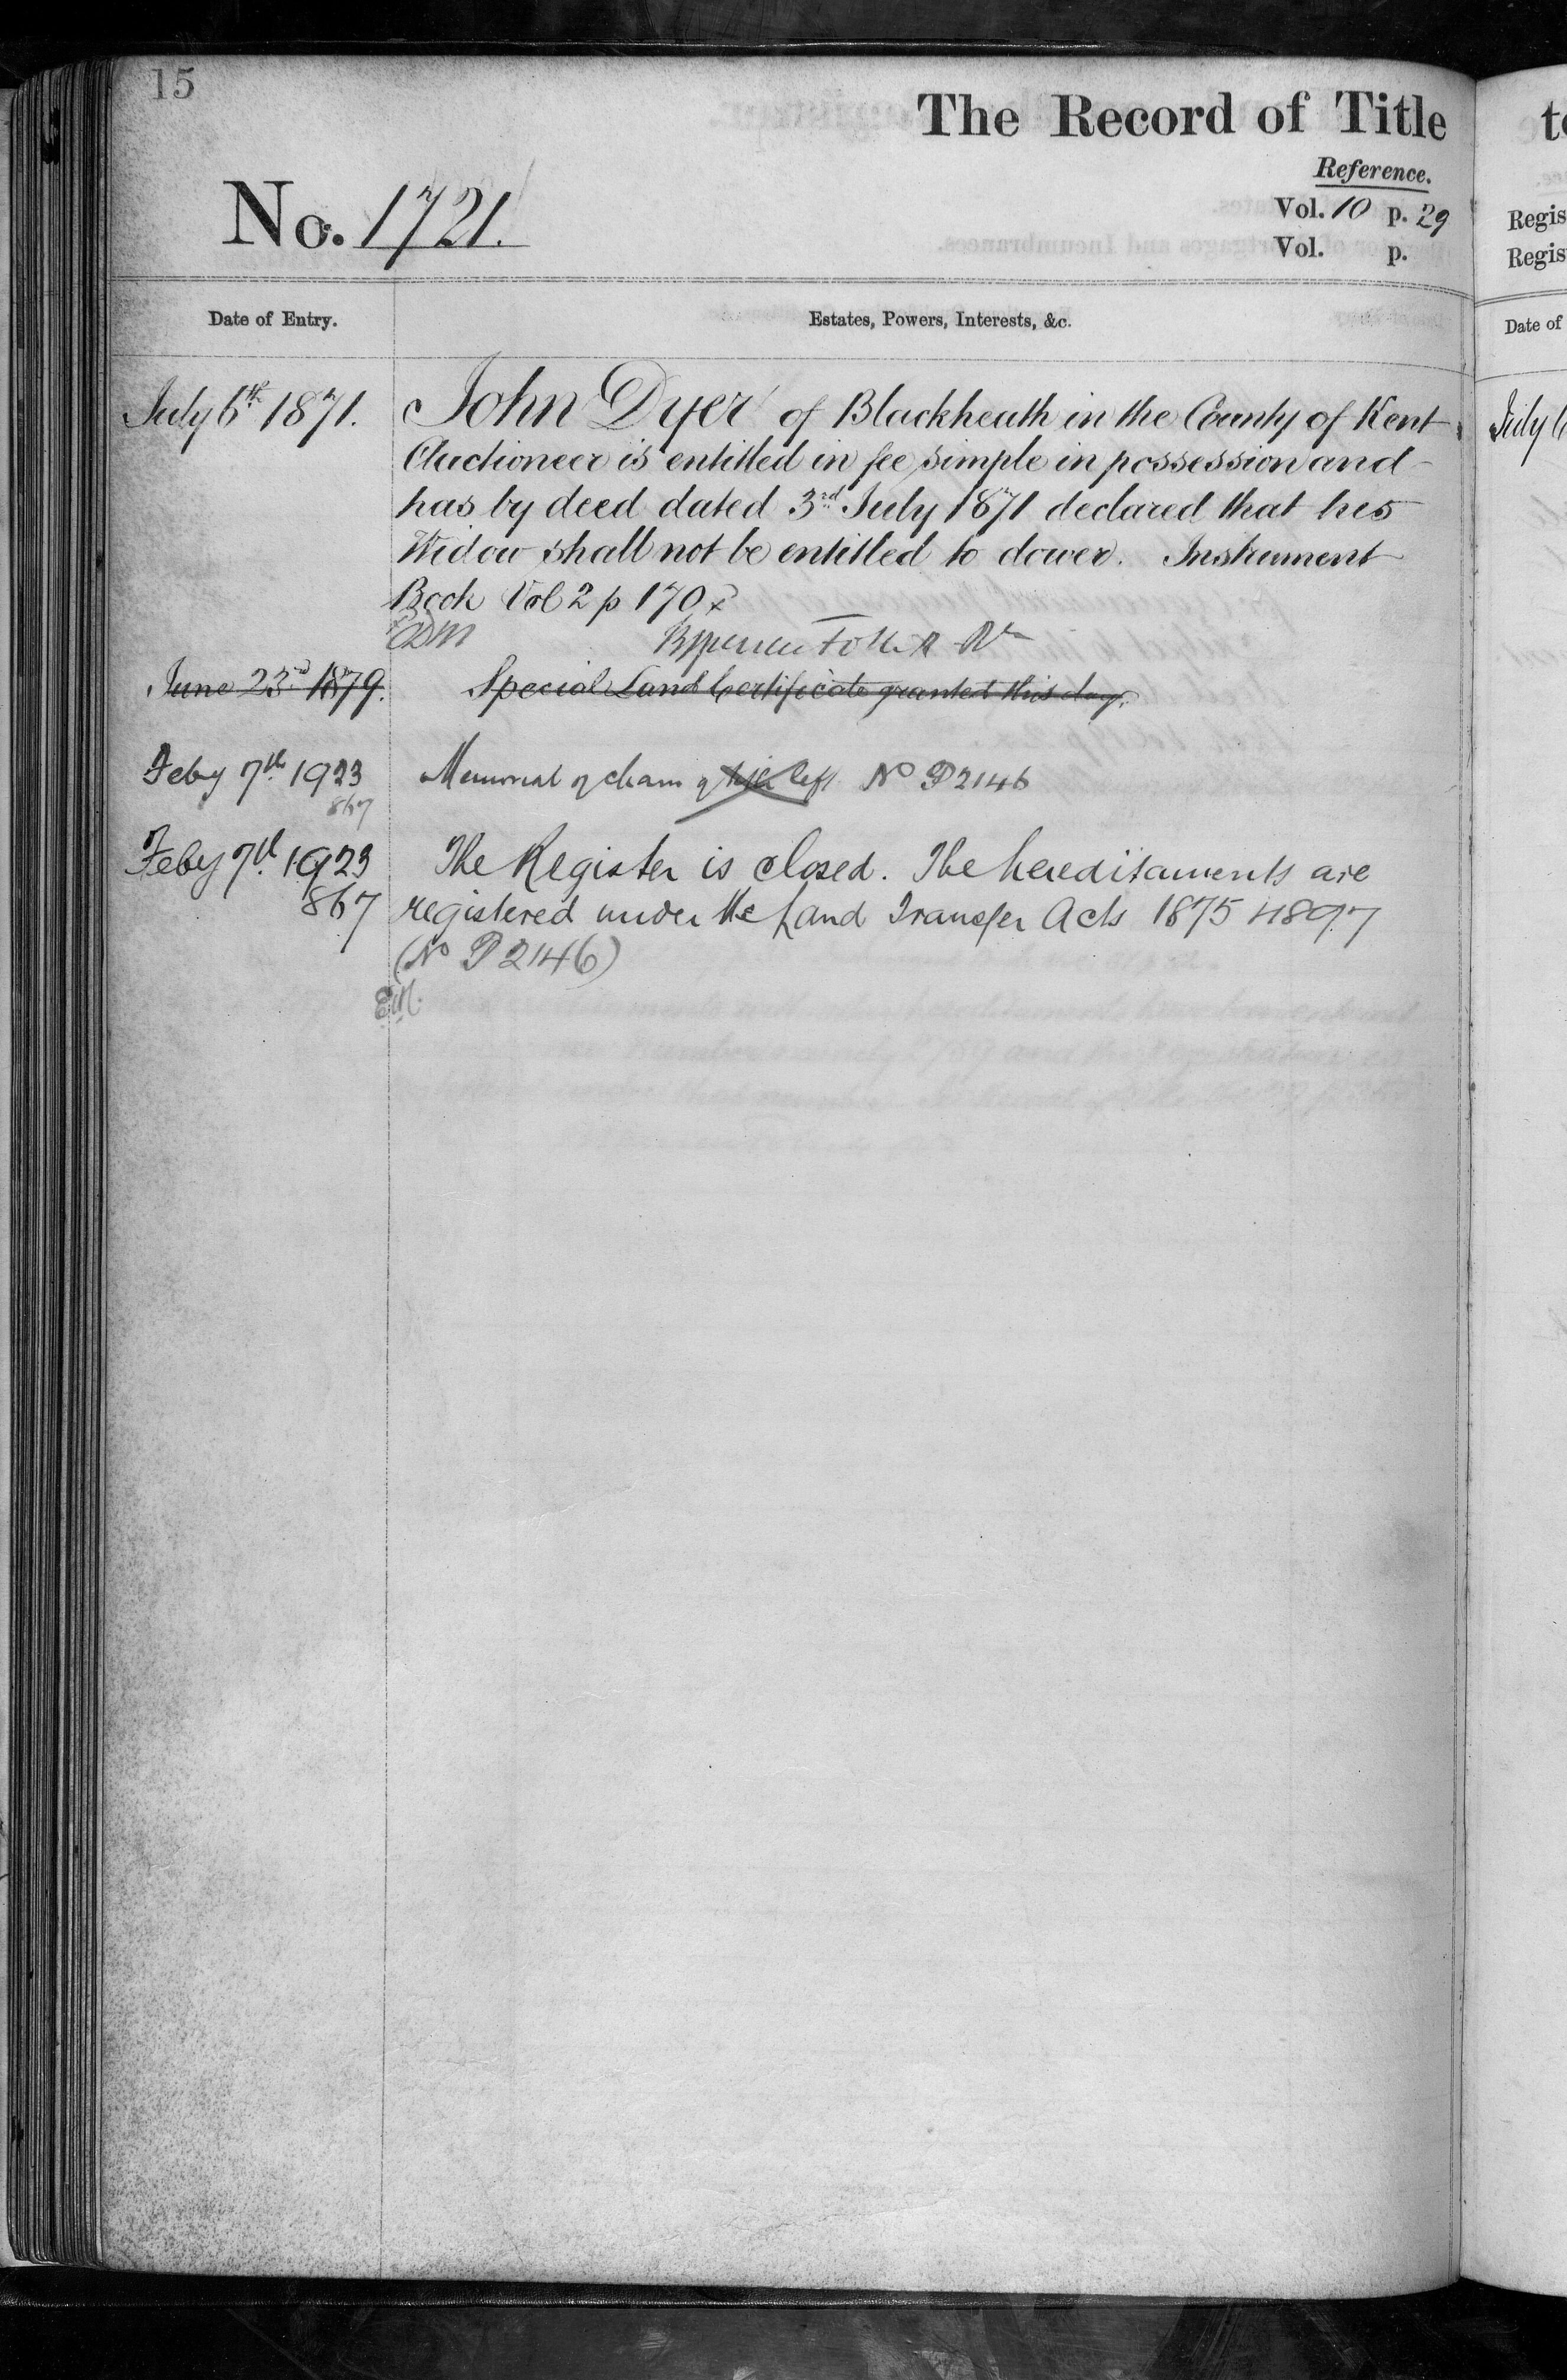 15
The Record of Title
Reference.
No. 1721.
Vol. 10 p. 29
Vol. p.
Date of Entry.
Estates, Powers, Interests, &c.
July 6th 1871.
John Dyer of Blackheath in the County of Kent
Auctioneer is entitled in fee simple in possession and
has by deed dated 3rd July 1871 declared that his
Widow shall not be entitled to dower. Instrument
Book Vol 2 p 170
June 23rd 1879.
Special Land Certificate granted this day.
Feby 7th 1923
867
Memorial of left No P2146
Feby 7th 1923
867
The Register is closed. The hereditaments are
registered under the Land Transfer Acts 1875 & 1897
(No P2146)
Regis
Regis
Date of
July 6